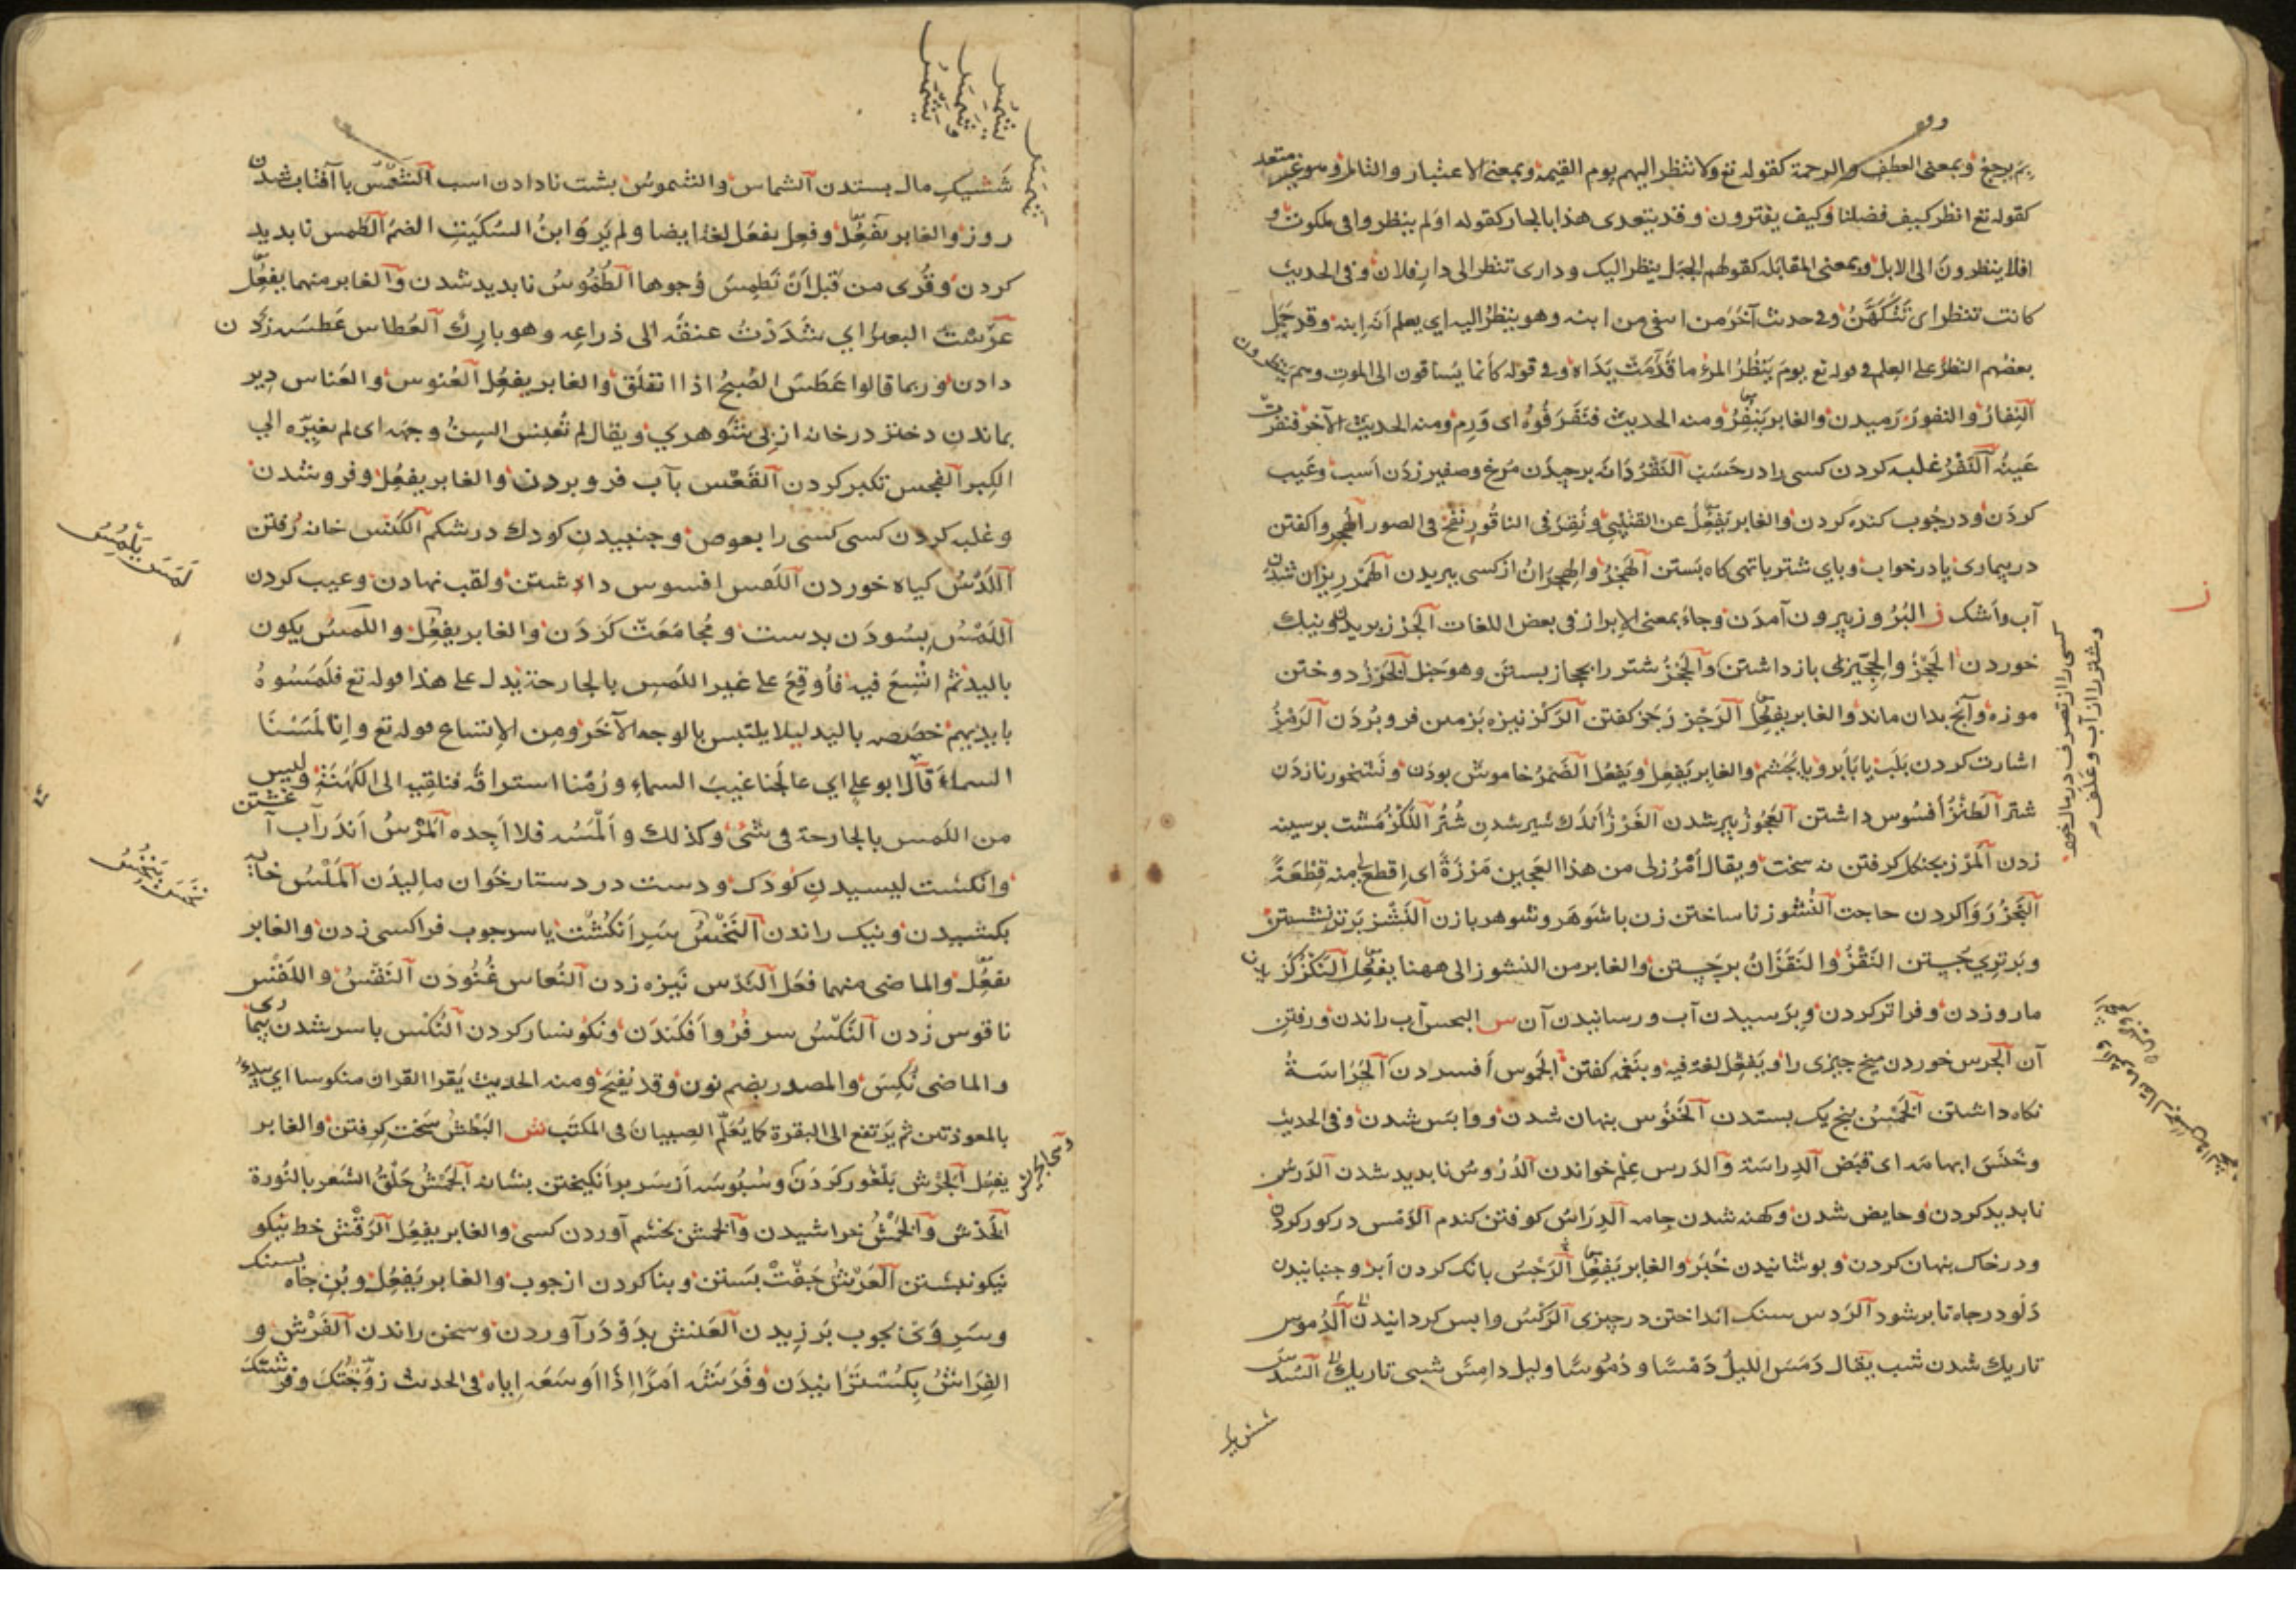 بِمَ يرجع وبمعنى العطف والرحمة كقوله تع ولا ينظر اليهم يوم القيمة وبمعنى الاعتبار والتامل وهو غير متعد
كقوله تع انظر كيف فضلنا وكيف يفترون وقد يتعدى هذا بالجار كقوله اولم ينظروا فى ملكوت و
افلا ينظرون الى الابل وبمعنى المقابلة كقولهم الجبل ينظر اليك ودارى تنظر الى دار فلان وفى الحديث
كانت تنظر اى تَتَكَهَّنُ وفى حديث آخر من ابنه وهو ينظر اليه اى يعلم انه ابنه وقد حمل
بعضهم النظر على العلم فى قوله تع يوم يَنْظُرُ المرؤ ما قَدَّمَتْ يَدَاهُ وفى قوله كأنما يساقون الى الموت وهم ينظرون
النِفارُ والنفور رَميدن والغابر يَنْفِرُ ومنه الحديث فنَفَرَ فُوهُ اى وَرِم ومنه الحديث الآخر فنفرت
عَينُه النَفْرُ غلبه كردن كسى را در حَسَب النَقْرُ دانه برچيدن مرغ وصفير زدن اسب وعَيب
كردن ودر چوب كنده كردن والغابر يَفعُلُ عن القتيبي ونُقِرَ فى الناقُور نفخ فى الصور الهُجر واكفتن
در بيمارى يا در خواب وپاى شتر با تهى كاه بستن الهَجْرُ والهِجرَانُ از كسى ببريدن الهَمْر ريزان شدن
آب واشك ز البُرُوز بيرون آمدن وجاءَ بمعنى الإبراز فى بعض اللغات الجَرْز بريدن ونيك
خوردن الحَجْزُ والحِجّيزى بازداشتن والحَجْزُ شتر را بحجاز بستن وهو حبل الخَرْزُ دوختن
موزه وآنچ بدان ماند والغابر يفعل الرَجْز رَجَز كفتن الرَكْز نيزه بزمين فرو بُردن الرَمْزُ
اشارت كردن بلَب يا بَابرو يا بچشم والغابر يَفعِل ويَفعُل الضَمْزُ خاموش بودن ونشخور نازدن
شتر الطَنْزُ افسُوس داشتن العَجُوز پير شدن الغَرْزُ اندك شير شدن شُتُر اللَكْزُ مُشت بر سينه
زدن المَرْز بچنكل كرفتن نه سخت ويقال أمْرُزلى من هذا العَجِين مَرْزَةً اى اقطع لى منه قِطْعَةً
النَجْزُ رَوا كردن حاجت النُشُوز ناساختن زن با شوهر وشوهر با زن النَشْز بر تر نشستن
وبَرترى جُستن النَقْزُ والنَقَزَانُ برجَستن والغابر من النشوز الى ههنا يفعل النَكْز كَزيدن
مار وزدن وفراتر كردن وبرسيدن آب ورسانيدن آن س البجس آب راندن ورفتن
آن الجَرس خوردن منج چيزى را ويَفعِل لغة فيه وبنَغمه كفتن الجُموس افسردن الحَرَاسَةُ
نكاه داشتن الخَمْسُ پنج يك بستدن الخُنُوس پنهان شدن ووابس شدن وفى الحديث
وخَنَسَ ابهامَه اى قبَض الدِراسَة والدَرس عِلم خواندن الدُرُوسُ نابديد شدن الدَرسُ
نابديد كردن وحايض شدن وكهنه شدن جامه الدِرَاسُ كوفتن كندم الدَمْس در كور كردن
ودر خاك پنهان كردن وپوشانيدن خَبَر والغابر يَفعل الرَجْسُ بانك كردن ابر وجنبانيدن
دَلْو در چاه تا برشود الرَدس سنك انداختن در چيزى الرَكْسُ وابس كردانيدن الدُموس
تاريك شدن شب يقال دَمَسَ الليلُ دَمْسًا ودُمُوسًا وليل دامس شبى تاريك السَدس
شش يك
كسى را از تصرف در مال خود
وشتر را از آب وعلف م
ز
شَشيك مال بستدن الشماس والشموسُ پشت نادادن اسب الشَمْسُ با آفتاب شدن
روز والغابر يَفعُل وفعِل يفعَل لغة ايضا ولم يَروِ ابنُ السكيت الضم الطَمس نابديد
كردن وقُرى من قبل ان نَطمِسَ وُجوها الطُمُوسُ نابديد شدن والغابر منهما يفعل
عرَستُ البعير اي شَدَدْتُ عنقَه الى ذراعِه وهو بارِك العُطاس عَطسَه زدن
دادن وربما قالوا عَطَسَ الصُبحُ اذا انفلق والغابر يفعِل العُنوس والعِناس دير
بماندن دختر در خانه از بى شوهرى ويقال لم تُعنِس السِنُّ وجهَه اى لم تغيّره الى
الكِبر الفجس تكبر كردن القَمْس بآب فرو بردن والغابر يفعُل وفرو شدن
وغلبه كردن كسى كسى را بغوص وجنبيدن كودك در شكم الكَنْس خانه رُفتن
اللَدْسُ كياه خوردن اللَقس افسوس داشتن ولقب نهادن وعيب كردن
اللَمْسُ بِسُودَن بدست ومُجامَعَت كردن والغابر يفعِل واللمسُ يكون
باليد ثم اتُّسِعَ فيه فأُوقِعَ على غير اللمس بالجارحة يدل على هذا قوله تع فلَمَسُوهُ
بايديهم خصَّصه باليد ليلا يلتبس بالوجه الآخَر ومن الإتساع قوله تع وانا لَمَسْنَا
السماءَ قال ابو على اي عالجنا غيبَ السماء ورُمْنا استراقَه فنلقيه الى الكَهَنَة وليس
من اللمس بالجارحة فى شىء وكذلك والمسُه فلا اجِده المَرْسُ اندر آب آغشتن
وانكشت ليسيدن كودك ودست در دستار خوان ماليدن المَلْسُ خايه
بكشيدن ونيك راندن النَخْسُ سَر انكُشْت يا سر چوب فرا كسى زدن والغابر
يفعل والماضى منهما فعَل النَدْس نيزه زدن النُعاس غُنُودَن النَقْسُ واللَقْس
ناقوس زدن النَكْسُ سر فُرُو افكندن ونكوسار كردن النُكْس با سر شدن بيمارى
والماضى نُكِسَ والمصدر بضم نون وقد يُفتح ومنه الحديث يُقرا القران منكوسا اي يبدء
بالمعوذتين ثم يَرتفع الى البقرة كما يُعَلّم الصبيان فى المكتب ش البَطْش سَخت كرفتن والغابر
يفعِل الجَرْش بلْغُور كردن وسُبُوسَه از سَر برانكيختن بشانه الجَمْشُ حَلْقُ الشَعر بالنُورة
الخَدْش والخَمْشُ خراشيدن والخمش بخشم آوردن كسى والغابر يفعِل الرَقْش خط نيكو
نيكو نبشتن العَرْش جَفْتْ بستن وبنا كردن از چوب والغابر يَفعِل وبُنِ چاه بسنك
وسَرِ وَى بچوب بَر زيدن العَلْنش بِدَوْ دَر آوردن وسخن راندن الفَرْش و
الفِرَاشُ بِكُسْتَرَانيدَن وفَرَشَه امرًا اذا اوسَعَه اياه فى الحديث زوَّجْتُكَ وفرشتك
لَمَسَ يَلْمِسُ
نَخَسَ يَنْخُسُ